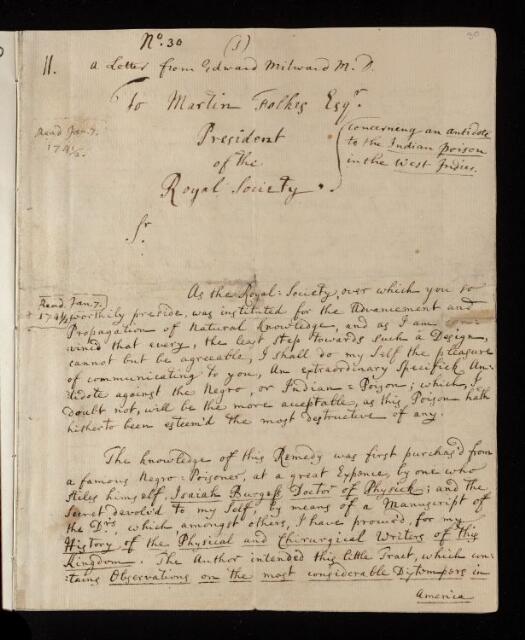 No. 30 (1) 30
11. a Letter from Edward Milward M.D.
To Martin Folkes Esqr.
President
of the
Royal Society.
Read Jan. 7.
1741/2.
Concerneng an antidote
to the Indian poison
in the West Indies.
Sr.
Read Jan. 7.
1741/2
As the Royal-Society, over which you so
worthily preside, was instituted for the Advancement and
Propagation of Natural Knowledge, and as I am con-
vinced that every, the least Step towards such a Design,
cannot but be agreeable, I shall do my Self the pleasure
of communicating to you, An extraordinary Specifick An-
tidote against the Negro, or Indian=Poison; which, I
doubt not, will be the more acceptable, as this Poison hath
hitherto been esteem'd the most destructive of any.
The knowledge of this Remedy was first purchas'd from
a famous Negro-Poisoner, at a great Expence, by one who
stiles himself, Isaiah Burgess Doctor of Physick; and the
Secret devolv'd to my Self, by means of a Manuscript of
the Drs, which amongst others, I have procur'd, for my
History of the Physical and Chirurgical Writers of this
Kingdom. The Author intended this little Tract, which con-
-tains Observations on the most considerable Distempers in
America